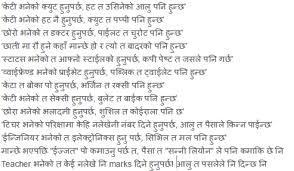 'केटी भनेको क्युट हुनुपर्छ, हट त उसिनेको आलु पनि हुन्छ'
'केटी भनेको हट नै हुनुपर्छ, क्युट त पप्पी पनि हुन्छ'
'छोरो भनेको त डक्टर हुनुपर्छ, पाईलट त चुरोट पनि हुन्छ'
'छाती ना रौं हुने कहाँ मान्छे हो र त्यो त बाँदरको पनि हुन्छ'
'स्टाटस भनेको त आफ्नो स्टाईलको हुनुपर्छ, कपी पेष्ट त जसले नि गर्छ'
'व्वाईफ्रेण्ड भनेको प्राईभेट हुनुपर्छ, पब्लिक त ट्वाईलेट पनि हुन्छ'
'केटा त बोका पो हुनुपर्छ, भर्जिन त रक्सी पनि हुन्छ'
'केटी भनेको त सेक्सी हुनुपर्छ, बुलेट त बाईक पनि हुन्छ'
'छोरा भनेको भलाद्मी हुनुपर्छ, सुशिल त कोईराला पनि छ'
'टिचर भनेको परिक्षामा केहि नलेखेनी नंबर दिने हुनुपर्छ, आलु त पैसाले किन्न पाईन्छ'
'ईन्जिनियर भनेको त इलेक्ट्रोनिक्स हुनु पर्छ, सिभिल त मल पनि हुन्छ'
मान्छे भएपछि "ईज्जत" पो कमाउनु पर्छ त, पैसा त "सन्नी लियोन" ले पनि कमाकि छे नि
Teacher भनेको त केई नलेखे नि marks दिने हुनुपर्छ! आलु त पसलेले नि दिन्छ नि